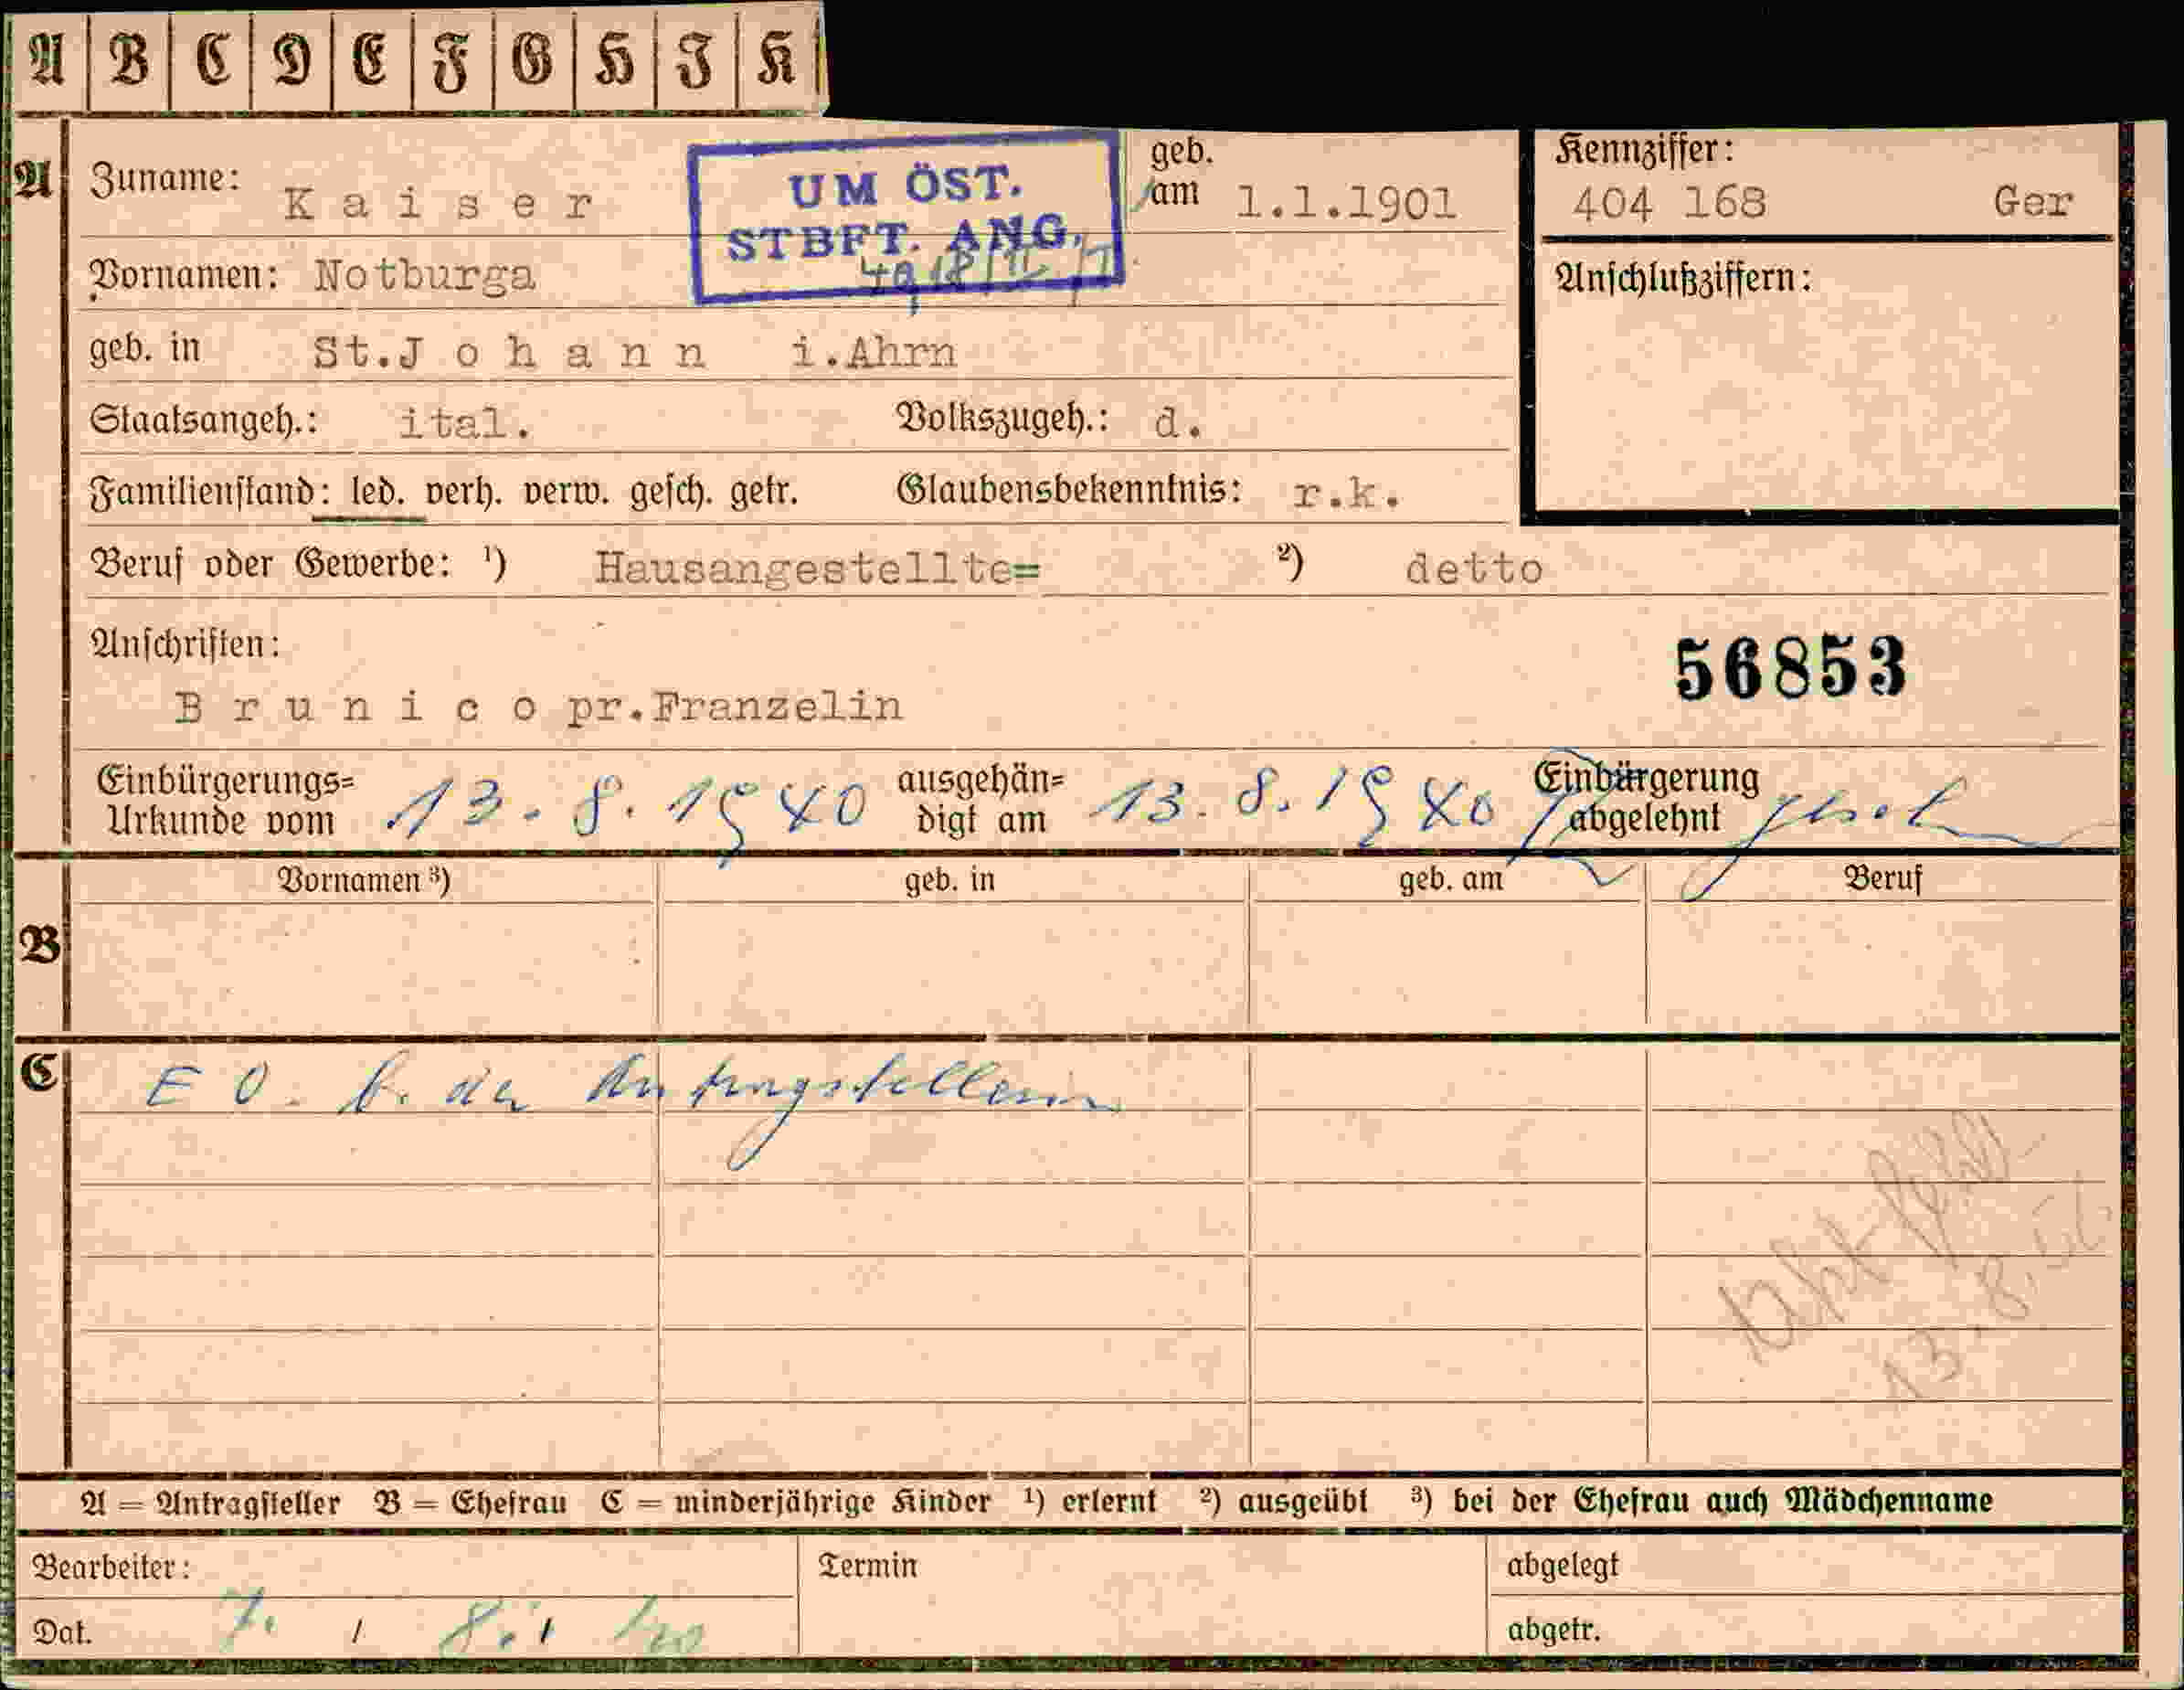 A B C D E F G H I K
A Zuname: Kaiser
UM ÖST.
STBFT. ANG.
geb. am 1.1.1901
Kennziffer:
404 168 Ger
Vornamen: Notburga
Anschlußziffern:
geb. in St.Johann i.Ahrn
Staatsangeh.: ital. Volkszugeh.: d.
Familienstand: led. verh. verw. gesch. getr. Glaubensbekenntnis: r.k.
Beruf oder Gewerbe: ¹) Hausangestellte= ²) detto
Anschriften:
56853
Brunico pr.Franzelin
Einbürgerungs=
Urkunde vom 13.8.1940
ausgehän=
digt am 13.8.1940
Einbürgerung
abgelehnt
B Vornamen ³) geb. in geb. am Beruf
C E O. b. der Antragstellerin
13.8.
A = Antragsteller B = Ehefrau C = minderjährige Kinder ¹) erlernt ²) ausgeübt ³) bei der Ehefrau auch Mädchenname
Bearbeiter: Termin abgelegt
Dat. 7. / 8. / abgetr.